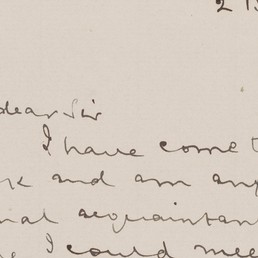 2
dear Sir
I have come t
k and am an
nal acquaintan
I could mee